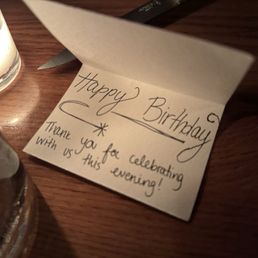 Happy Birthday
Thank you for celebrating
with us this evening!